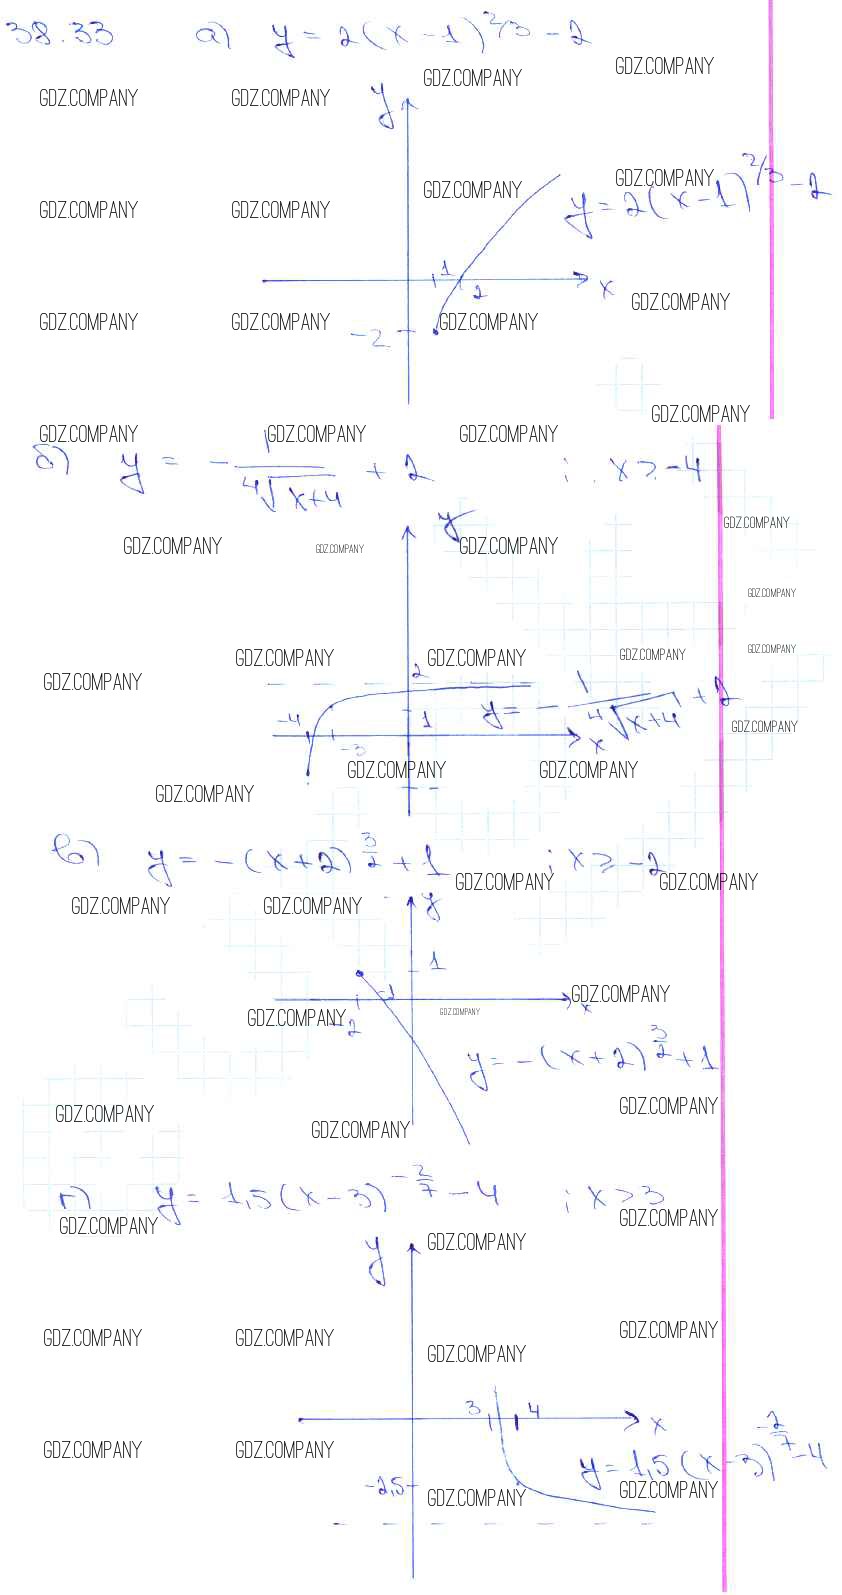 38.33 а) y = 2(x-1)^2/3 - 2
GDZ.COMPANY GDZ.COMPANY GDZ.COMPANY GDZ.COMPANY
y
y = 2(x-1)^2/3 - 2
GDZ.COMPANY GDZ.COMPANY GDZ.COMPANY GDZ.COMPANY
1
2 x
GDZ.COMPANY GDZ.COMPANY GDZ.COMPANY GDZ.COMPANY
-2
GDZ.COMPANY
GDZ.COMPANY GDZ.COMPANY GDZ.COMPANY
б) y = - 1/∜(x+4) + 2 ; x ≥ -4
y
GDZ.COMPANY GDZ.COMPANY GDZ.COMPANY GDZ.COMPANY
GDZ.COMPANY
GDZ.COMPANY GDZ.COMPANY GDZ.COMPANY GDZ.COMPANY GDZ.COMPANY
2
y = - 1/∜(x+4) + 2
-4 1 GDZ.COMPANY
-3 x
GDZ.COMPANY GDZ.COMPANY GDZ.COMPANY
в) y = -(x+2)^3/2 + 1 ; x ≥ -2
GDZ.COMPANY GDZ.COMPANY
GDZ.COMPANY GDZ.COMPANY y
1
-1 GDZ.COMPANY
-2 x
GDZ.COMPANY GDZ.COMPANY
y = -(x+2)^3/2 + 1
GDZ.COMPANY GDZ.COMPANY GDZ.COMPANY
г) y = 1,5(x-3)^-2/7 - 4 ; x > 3
GDZ.COMPANY GDZ.COMPANY
y GDZ.COMPANY
GDZ.COMPANY GDZ.COMPANY GDZ.COMPANY GDZ.COMPANY
3 4 x
y = 1,5(x-3)^-2/7 - 4
GDZ.COMPANY GDZ.COMPANY
-2,5 GDZ.COMPANY GDZ.COMPANY